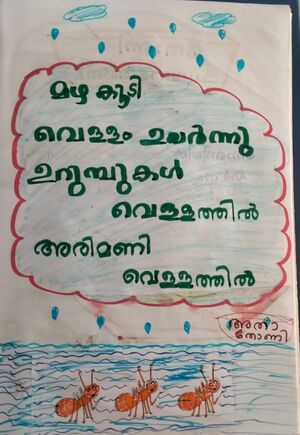 മഴ കൂടി
വെള്ളം ഉയർന്നു
ഉറുമ്പുകൾ
വെള്ളത്തിൽ
അരിമണി
വെള്ളത്തിൽ
അതാ
തോണി